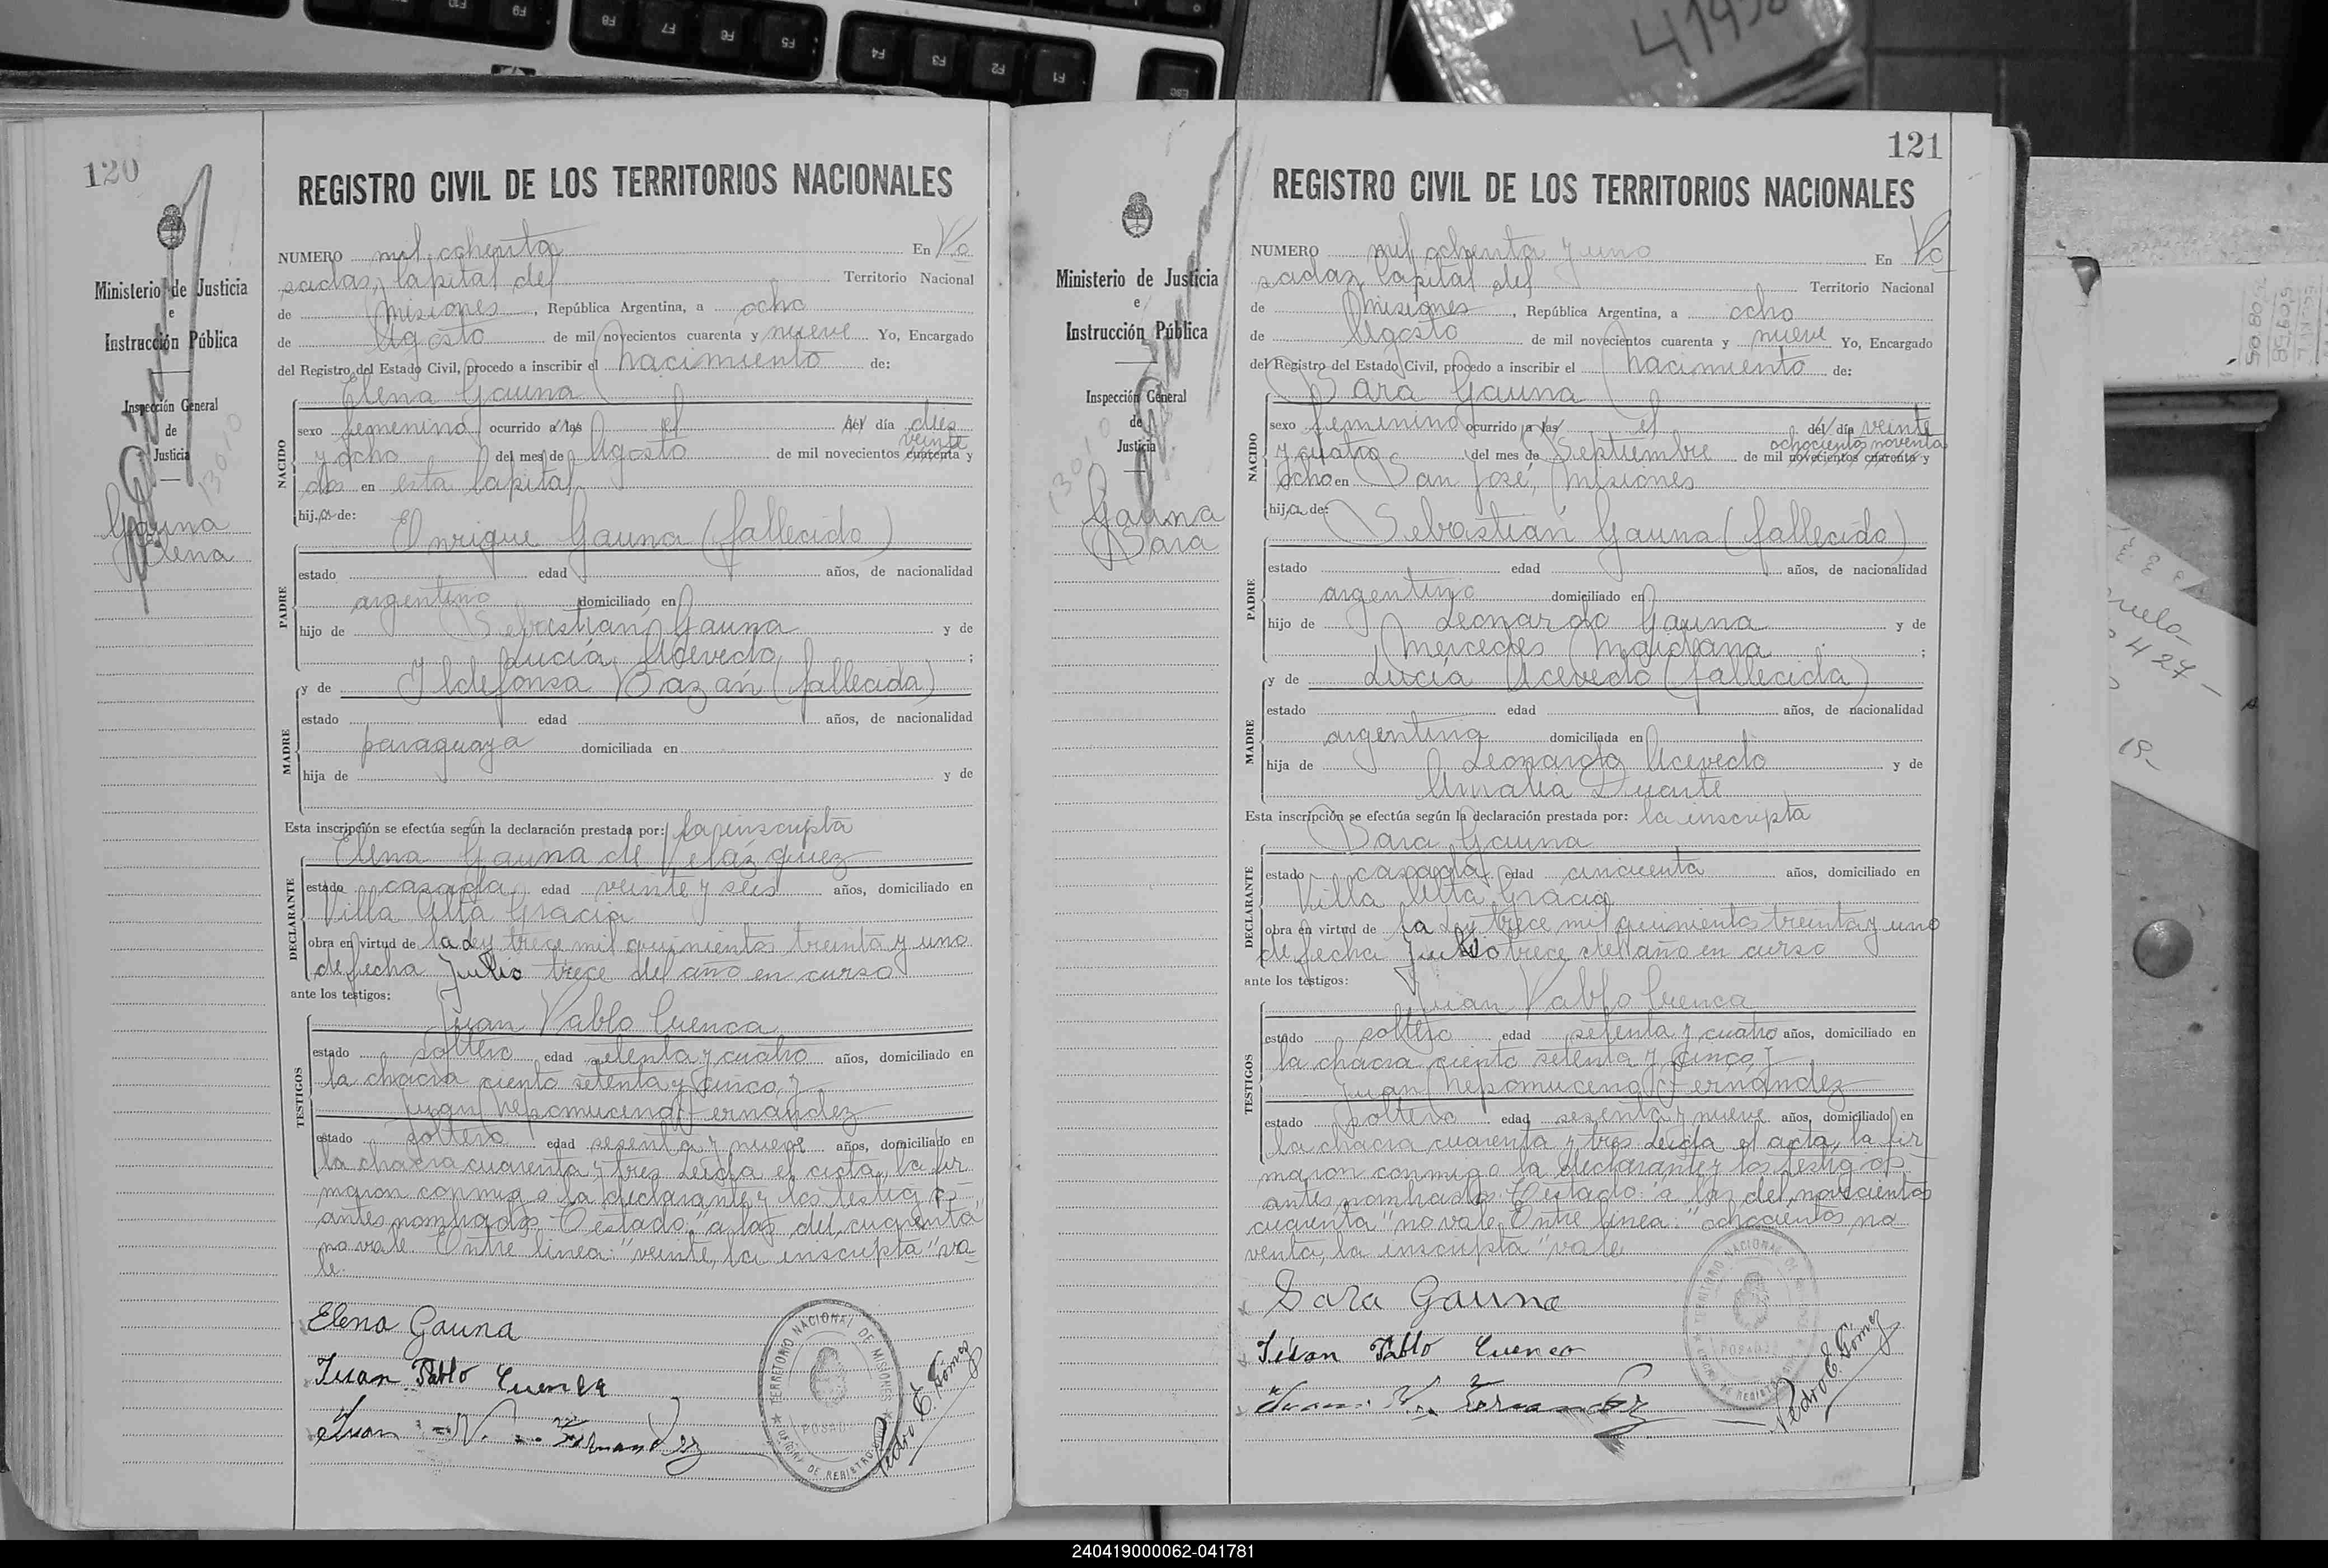 41950
120
REGISTRO CIVIL DE LOS TERRITORIOS NACIONALES
Ministerio de Justicia
e
Instrucción Pública
Inspección General
de
Justicia
13010
Gauna
Elena
NUMERO mil ochenta En Po
sadas, Capital del Territorio Nacional
de Misiones, República Argentina, a ocho
de Agosto de mil novecientos cuarenta y nueve Yo, Encargado
del Registro del Estado Civil, procedo a inscribir el nacimiento de:
Elena Gauna
NACIDO
sexo femenino ocurrido a las el del día diez
veinte
y ocho del mes de Agosto de mil novecientos cuarenta y
dos en esta Capital
hija de:
Enrique Gauna (fallecido)
PADRE
estado edad años, de nacionalidad
argentino domiciliado en
hijo de Sebastián Gauna y de
Lucía Acevedo;
y de Ildefonsa Bazán (fallecida)
MADRE
estado edad años, de nacionalidad
paraguaya domiciliada en
hija de y de
Esta inscripción se efectúa según la declaración prestada por: la inscripta
Elena Gauna de Velázquez
DECLARANTE
estado casada edad veinte y seis años, domiciliado en
Villa Alta Gracia
obra en virtud de la Ley trece mil quinientos treinta y uno
de fecha Julio trece del año en curso
ante los testigos:
Juan Pablo Cuenca
TESTIGOS
estado soltero edad setenta y cuatro años, domiciliado en
la chacra ciento setenta y cinco y
Juan Nepomuceno Fernández
estado soltero edad sesenta y nueve años, domiciliado en
la chacra cuarenta y tres Leída el acta, la fir
maron conmigo la declarante y los testigos
antes nombrados. Testado: "a las, del, cuarenta"
no vale. Entre línea: "veinte, la inscripta" va
le.
Elena Gauna
Juan Pablo Cuenca
Juan N. Fernandez
TERRITORIO NACIONAL DE MISIONES
POSADAS
Pedro E. Gómez
121
REGISTRO CIVIL DE LOS TERRITORIOS NACIONALES
Ministerio de Justicia
e
Instrucción Pública
Inspección General
de
Justicia
13010
Gauna
Sara
NUMERO mil ochenta y uno En Po
sadas, Capital del Territorio Nacional
de Misiones, República Argentina, a ocho
de Agosto de mil novecientos cuarenta y nueve Yo, Encargado
del Registro del Estado Civil, procedo a inscribir el nacimiento de:
Sara Gauna
NACIDO
sexo femenino ocurrido a las el del día veinte
ochocientos noventa
y cuatro del mes de Septiembre de mil novecientos cuarenta y
ocho en San José, Misiones
hija de:
Sebastián Gauna (fallecido)
PADRE
estado edad años, de nacionalidad
argentino domiciliado en
hijo de Leonardo Gauna y de
Mercedes Maidana;
y de Lucía Acevedo (fallecida)
MADRE
estado edad años, de nacionalidad
argentina domiciliada en
hija de Leonardo Acevedo y de
Amalia Duarte
Esta inscripción se efectúa según la declaración prestada por: la inscripta
Sara Gauna
DECLARANTE
estado casada edad cincuenta años, domiciliado en
Villa Alta Gracia
obra en virtud de la Ley trece mil quinientos treinta y uno
de fecha Julio trece del año en curso
ante los testigos:
Juan Pablo Cuenca
TESTIGOS
estado soltero edad setenta y cuatro años, domiciliado en
la chacra ciento setenta y cinco y
Juan Nepomuceno Fernández
estado soltero edad sesenta y nueve años, domiciliado en
la chacra cuarenta y tres Leída el acta, la fir
maron conmigo la declarante y los testigos
antes nombrados. Testado: "a las, del, novecientos
cuarenta" no vale. Entre línea: "ochocientos no
venta, la inscripta" vale
Sara Gauna
Juan Pablo Cuenca
Juan N. Fernandez
POSADAS
Pedro E. Gómez
240419000062-041781